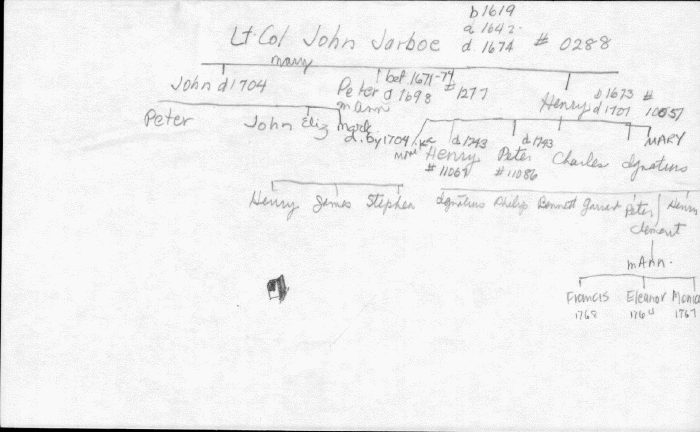 b 1619
a 1642
d 1674
Lt. Col John Jarboe # 0288
mary
John d 1704
bef 1671-74
Peter d 1698 # 1277
m Ann
Henry b 1673 d 1707 #
Peter John Eliz mark
d. by 1704
d 1743 d 1743 MARY
Henry Peter Charles Ignatius
# 11086
Henry James Stephen
Ignatius Philip Bennett Peter Henry
Clement
m Ann.
Francis Eleanor Monica
1768 1767